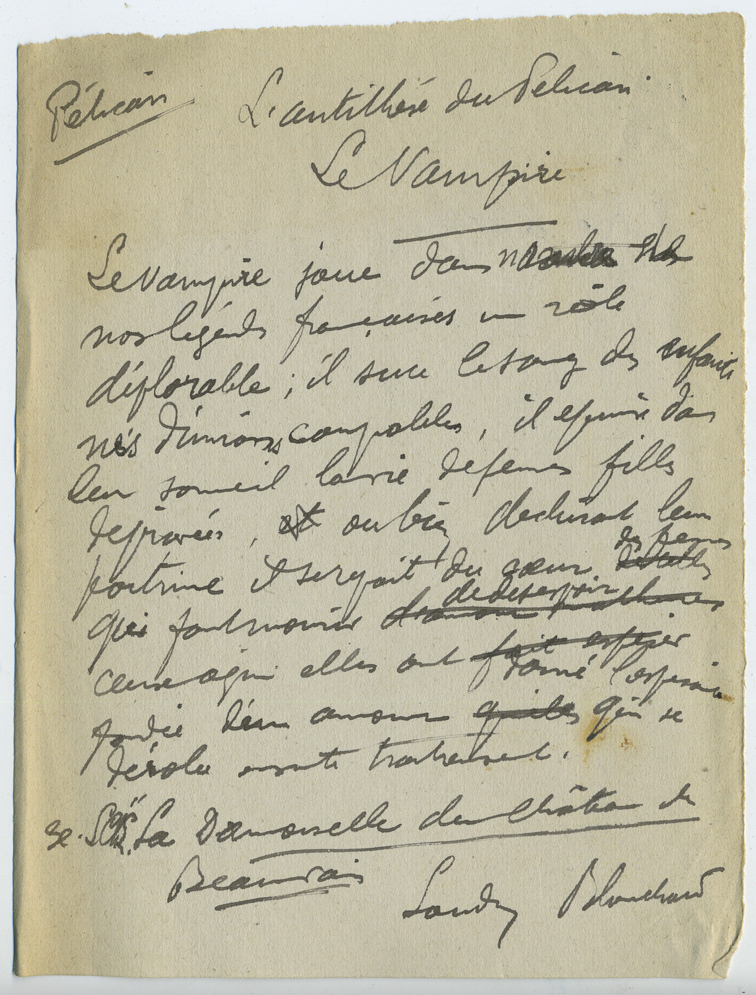 Pélican
L'antithèse du Pélican
Le Vampire
Le Vampire joue dans
nos légendes françaises un rôle
déplorable ; il suce le sang des enfants
nés d'unions coupables, il épuise dans
leur sommeil la vie de femmes filles
dépravées, ou bien déchirant leur
poitrine il se repait du cœur des femmes
qui font mourir de désespoir
ceux à qui elles ont donné l'espérance
d'un amour qui se
dérobe ensuite traitreusement.
La Demoiselle du Château de
Beauvais
Landry Blanchard